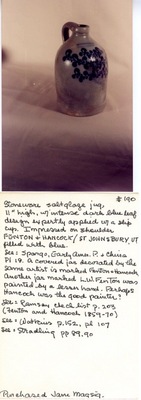 #190
Stoneware saltglaze jug,
11" high, w/ intense dark blue leaf
design expertly applied w/ a slip
cup. Impressed on shoulder
FENTON & HANCOCK/ ST JOHNSBURY, VT
filled with blue.
See: Spargo, Early Amer. P. & China
Pl 19. A covered jar decorated by the
same artist is marked Fenton & Hancock
Another jar marked L.W. Fenton was
painted by a lesser hand. Perhaps
Hancock was the good painter?
See: Ramsay check list p. 203
(Fenton and Hancock 1859-70)
See: Watkins p. 152, pl 107
See: Stradling pp 89, 90
Purchased Jam